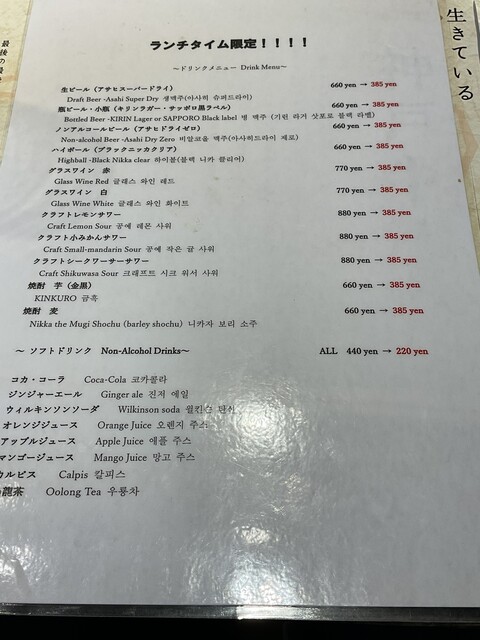 生きている
ランチタイム限定！！！！
～ドリンクメニュー Drink Menu～
生ビール（アサヒスーパードライ） 660 yen → 385 yen
Draft Beer -Asahi Super Dry 생맥주(아사히 슈퍼드라이)
瓶ビール・小瓶（キリンラガー・サッポロ黒ラベル） 660 yen → 385 yen
Bottled Beer -KIRIN Lager or SAPPORO Black label 병 맥주 (기린 라거 삿포로 블랙 라벨)
ノンアルコールビール（アサヒドライゼロ） 660 yen → 385 yen
Non-alcohol Beer -Asahi Dry Zero 비알코올 맥주(아사히드라이 제로)
ハイボール（ブラックニッカクリア） 660 yen → 385 yen
Highball -Black Nikka clear 하이볼(블랙 니카 클리어)
グラスワイン 赤 770 yen → 385 yen
Glass Wine Red 글래스 와인 레드
グラスワイン 白 770 yen → 385 yen
Glass Wine White 글래스 와인 화이트
クラフトレモンサワー 880 yen → 385 yen
Craft Lemon Sour 공예 레몬 사워
クラフト小みかんサワー 880 yen → 385 yen
Craft Small-mandarin Sour 공예 작은 귤 사워
クラフトシークワーサーサワー 880 yen → 385 yen
Craft Shikuwasa Sour 크래프트 시크 워서 사워
焼酎 芋（金黒） 660 yen → 385 yen
KINKURO 금흑
焼酎 麦 660 yen → 385 yen
Nikka the Mugi Shochu (barley shochu) 니카자 보리 소주
～ ソフトドリンク Non-Alcohol Drinks～ ALL 440 yen → 220 yen
コカ・コーラ Coca-Cola 코카콜라
ジンジャーエール Ginger ale 진저 에일
ウィルキンソンソーダ Wilkinson soda 윌킨슨 탄산
オレンジジュース Orange Juice 오렌지 주스
アップルジュース Apple Juice 애플 주스
マンゴージュース Mango Juice 망고 주스
カルピス Calpis 칼피스
龍茶 Oolong Tea 우롱차